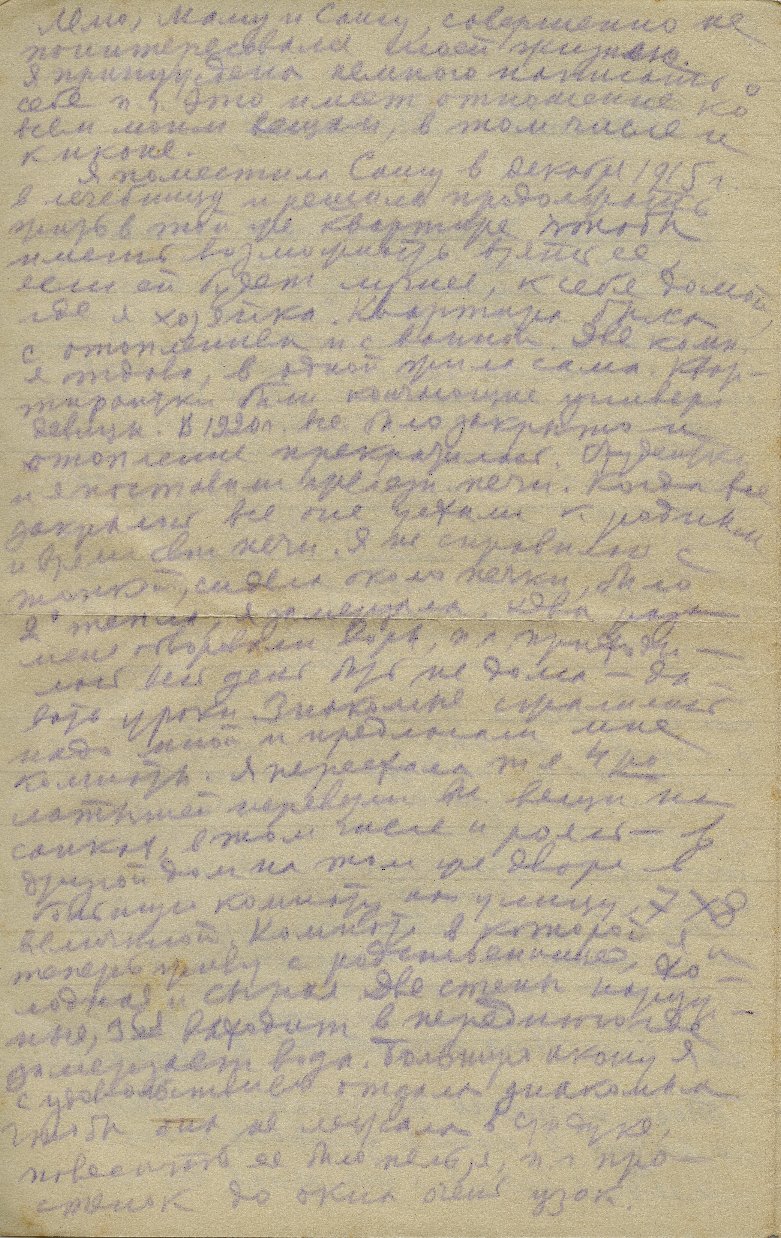 Лёлю, Машу и Сашу, совершенно не
поинтересовался моей жизнею.
Я принуждена немного написать о
себе п.ч. это имеет отношение ко
всем моим вещам, в том числе и
к иконе.
Я поместила Сашу в декабре 1915 г.
в лечебницу и решила продолжать
жить в той же квартире чтобы
иметь возможность взять ее,
если ей будет лучше, к себе домой,
где я хозяйка. Квартира была
с отоплением и с ванной. Две комн.
я сдавала, в одной жила сама. Квар-
тирантки были кончающие универ.
девицы. В 1920 г. все было закрыто и
отопление прекратилось. Студентки
и я поставили времен. печи. Когда все
закрылось все они уехали к родным
и взяли свои печи. Я не справилась с
топкой, сидела около печки, было
тепло, я замерзала. Два раза
меня обворовали воры, п.ч. приходи-
лось весь день быть не дома – да-
вать уроки. Знакомые сжалились
надо мной и предложили мне
комнату. Я переехала т.е. 4
латышей перевезли м. вещи на
санках, в том числе и рояль – в
другой дом на том же дворе в
большую комнату на улицу, 7 х 8
величиной. Комната в которой я и
теперь живу с родственницей, хо-
лодная и сырая. Две стены наруж-
ные, 3-я выходит в переднюю где
замерзает вода. Большую икону я
с удовольствием отдала знакомым
чтобы она не лежала в сундуке,
повесить ее было нельзя, п.ч. про-
стенок до окна очень узок.